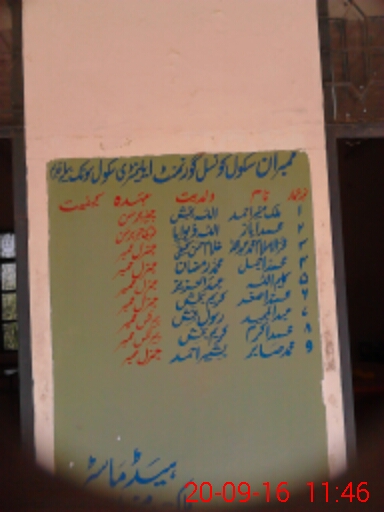 ممبران سکول کونسل گورنمنٹ ایلیمنٹری سکول
نمبر شمار نام ولدیت عہدہ کیفیت
۱ ملک منیر احمد اللہ بخش چیئرمین
۲ محمد ایاز
۳ غلام جنرل ممبر
۴ محمد اجمل محمد رمضان جنرل ممبر
۵ کلیم اللہ عبدالعزیز جنرل ممبر
۶ محمد اصغر کریم بخش جنرل ممبر
۷ عبدالمجید رسول بخش ممبر
۸ محمد اکرم کریم بخش ممبر
۹ محمد صابر بشیر احمد جنرل ممبر
ہیڈ ماسٹر
20-09-16 11:46